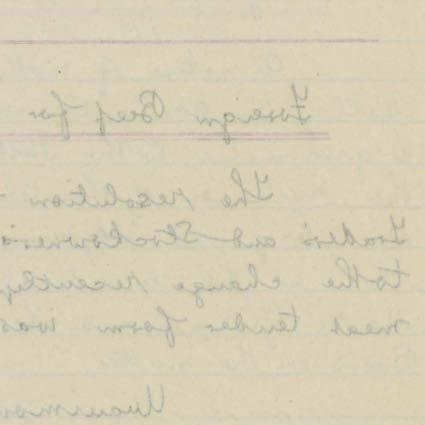 Foreign Beef for
The resolution
Trader's and Stockowner's
to the change recently
meat tender form was